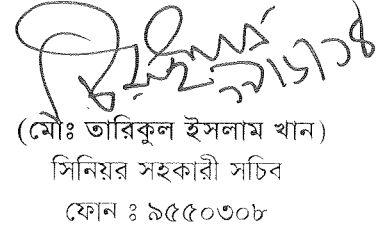 (মৌঃ তারিকুল ইসলাম খান)
সিনিয়র সহকারী সচিব
ফোন ঃ ৯৫৫০৩০৮